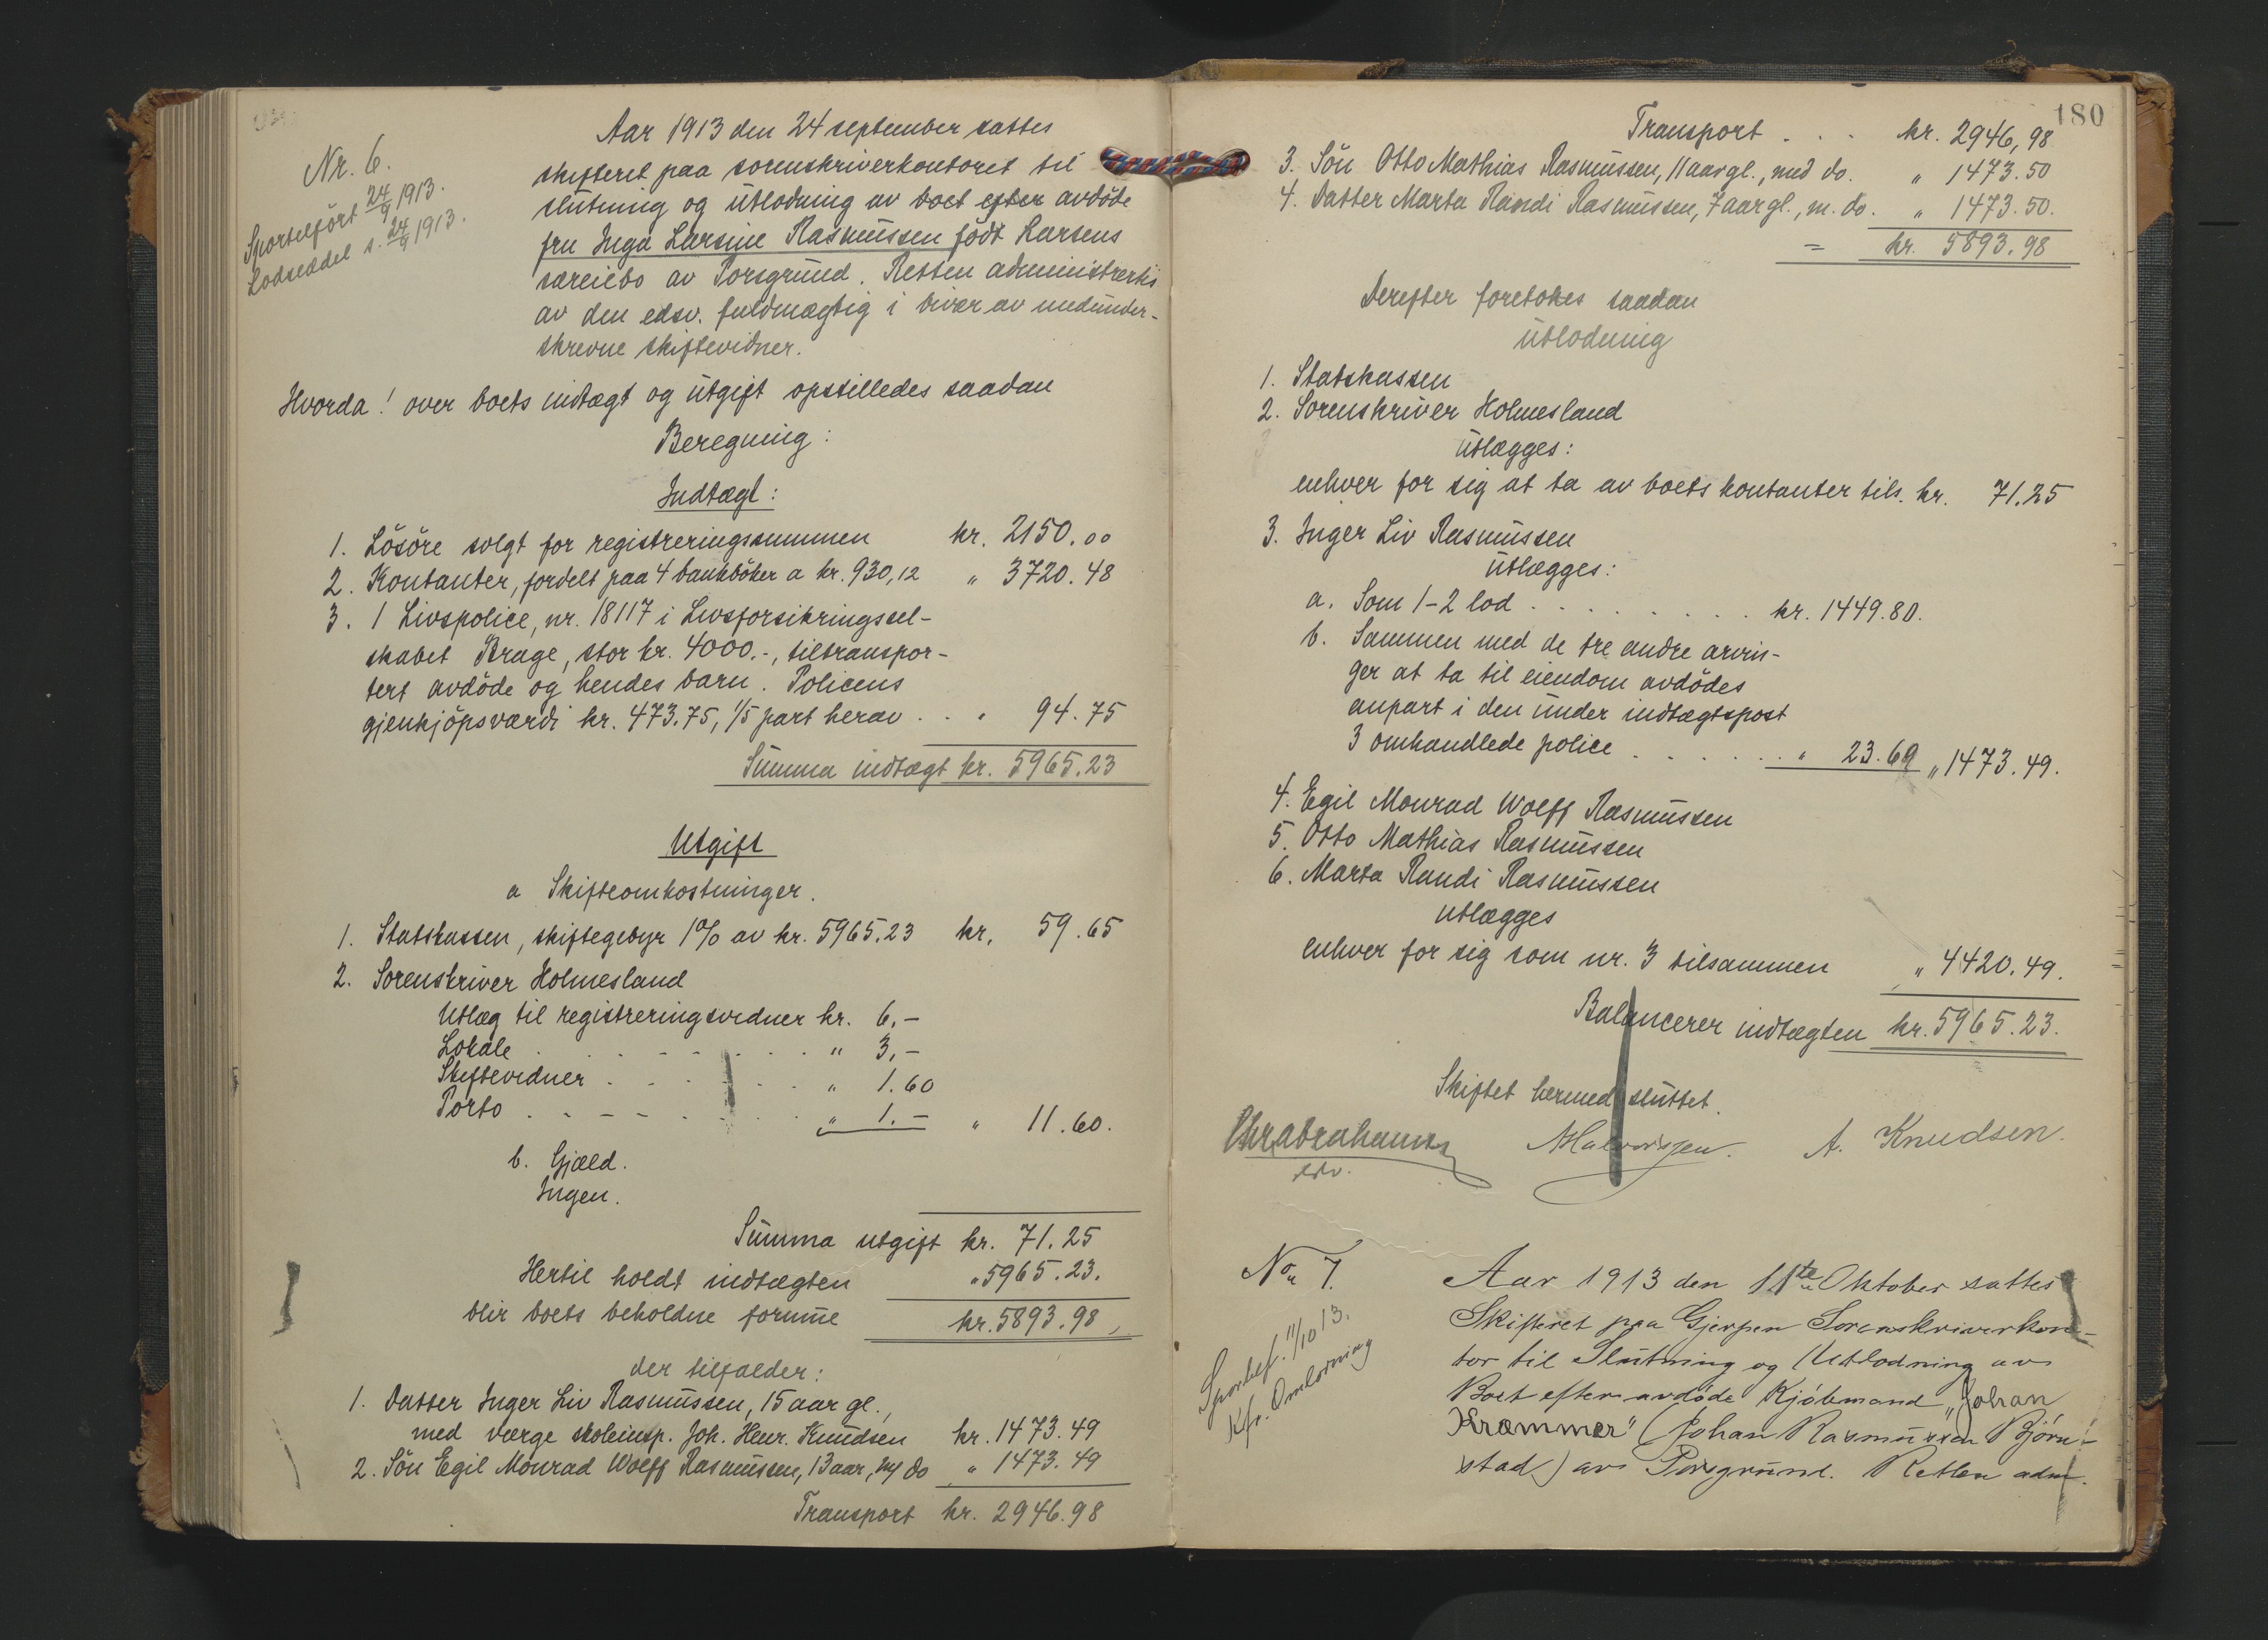 Nr. 6.
Sportelført 24/9 1913.
Lodseddel s. 24/9 1913.
Aar 1913 den 24 september sattes
skifteret paa sorenskriverkontoret til
slutning og utlodning av boet efter avdöde
fru Inga Larsine Rasmussen födt Larsens
særeiebo av Porsgrund. Retten administrertes
av den edsv. fuldmægtig i nvær av medunder-
skrevne skiftevidner.
Hvorda! over boets indtægt og utgift opstilledes saadan
Beregning:
Indtægt:
1. Lösöre solgt for registreringssummen kr. 2150.00
2. Kontanter, fordelt paa 4 bankböker a kr. 930,12 " 3720.48
3. 1 Livspolice, nr. 18117 i Livsforsikringssel-
skabet Brage, stor kr. 4000.-, tiltranspor-
tert avdöde og hendes barn. Policens
gjenkjöpsværdi kr. 473.75, 1/5 part herav . . " 94.75
Summa indtægt kr. 5965.23
Utgift
a Skifteomkostninger.
1. Statskassen, skiftegebyr 1% av kr. 5965.23 kr. 59.65
2. Sorenskriver Holmesland
Utlæg til registreringsvidner kr. 6,-
Lokale . . . . . . . . " 3,-
Skiftevidner . . . . . . " 1.60
Porto . . . . . . . . " 1.- " 11.60.
b. Gjæld.
Ingen.
Summa utgift kr. 71.25
Hertil holdt indtægten " 5965.23.
blir boets beholdne formue kr. 5893.98,
der tilfalder:
1. Datter Inger Liv Rasmussen, 15 aar gl.,
med værge skoleinsp. Joh. Henr. Knudsen kr. 1473.49
2. Sön Egil Monrad Wolff Rasmussen, 13 aar, m/ do " 1473.49
Transport kr. 2946.98
180
Transport . . . kr. 2946,98
3. Sön Otto Mathias Rasmussen, 11 aar gl., med do. " 1473.50
4. Datter Marta Randi Rasmussen, 7 aar gl., m. do. " 1473.50.
= kr. 5893.98
Derefter foretokes saadan
utlodning
1. Statskassen
2. Sorenskriver Holmesland
utlægges:
enhver for sig at ta av boets kontanter tils. kr. 71.25
3. Inger Liv Rasmussen
utlægges:
a. Som 1-2 lod . . . . . . . . . kr. 1449.80.
b. Sammen med de tre andre arvin-
ger at ta til eiendom avdödes
anpart i den under indtægtspost
3 omhandlede police . . . . . . " 23.69 " 1473.49.
4. Egil Monrad Wolff Rasmussen
5. Otto Mathias Rasmussen
6. Marta Randi Rasmussen
utlægges
enhver for sig som nr. 3 tilsammen " 4420.49.
Balancerer indtægten kr. 5965.23.
Skiftet hermed sluttet.
Chr Abrahams A Halvorsen. A. Knudsen.
edv.
No 7.
Sportelf. 11/10 13.
Kfr. Omlodning
Aar 1913 den 11te Oktober sattes
Skifteret paa Gjerpen Sorenskriverkon-
tor til Slutning og Utlodning av
Boet efter avdøde Kjøbmand "Johan
Kræmmer" (Johan Rasmussen Bjørn-
stad) av Porsgrund. Retten adm.